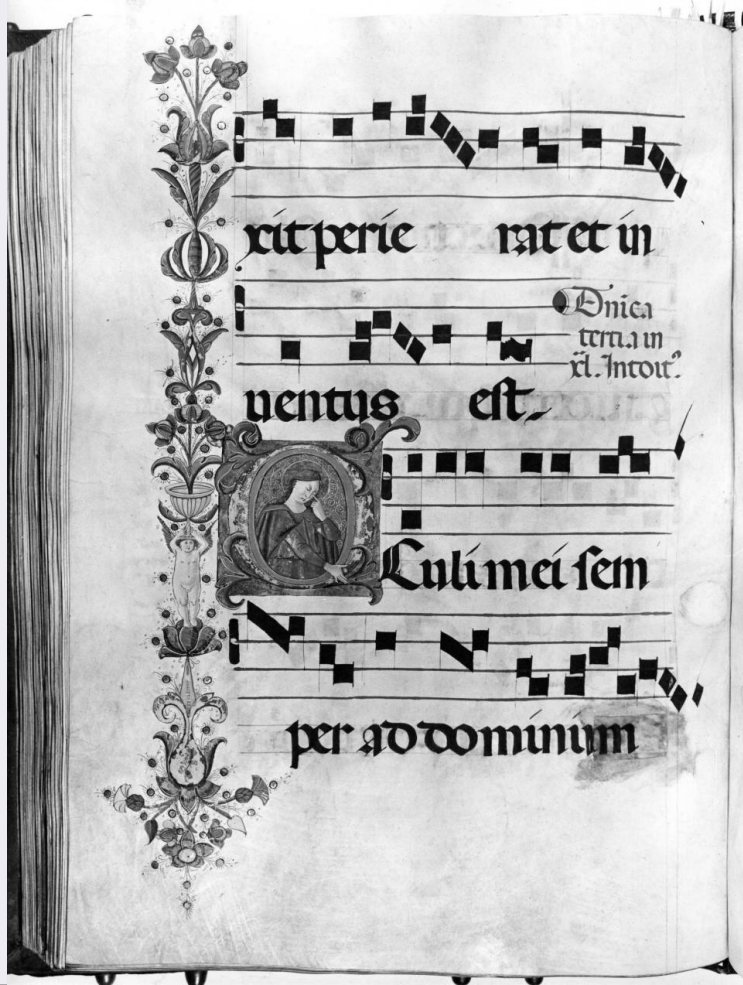 xit perie rat et in
Dnica
tertia in
xl. Introit⁹.
uentus est.
Oculi mei sem
per ad dominum